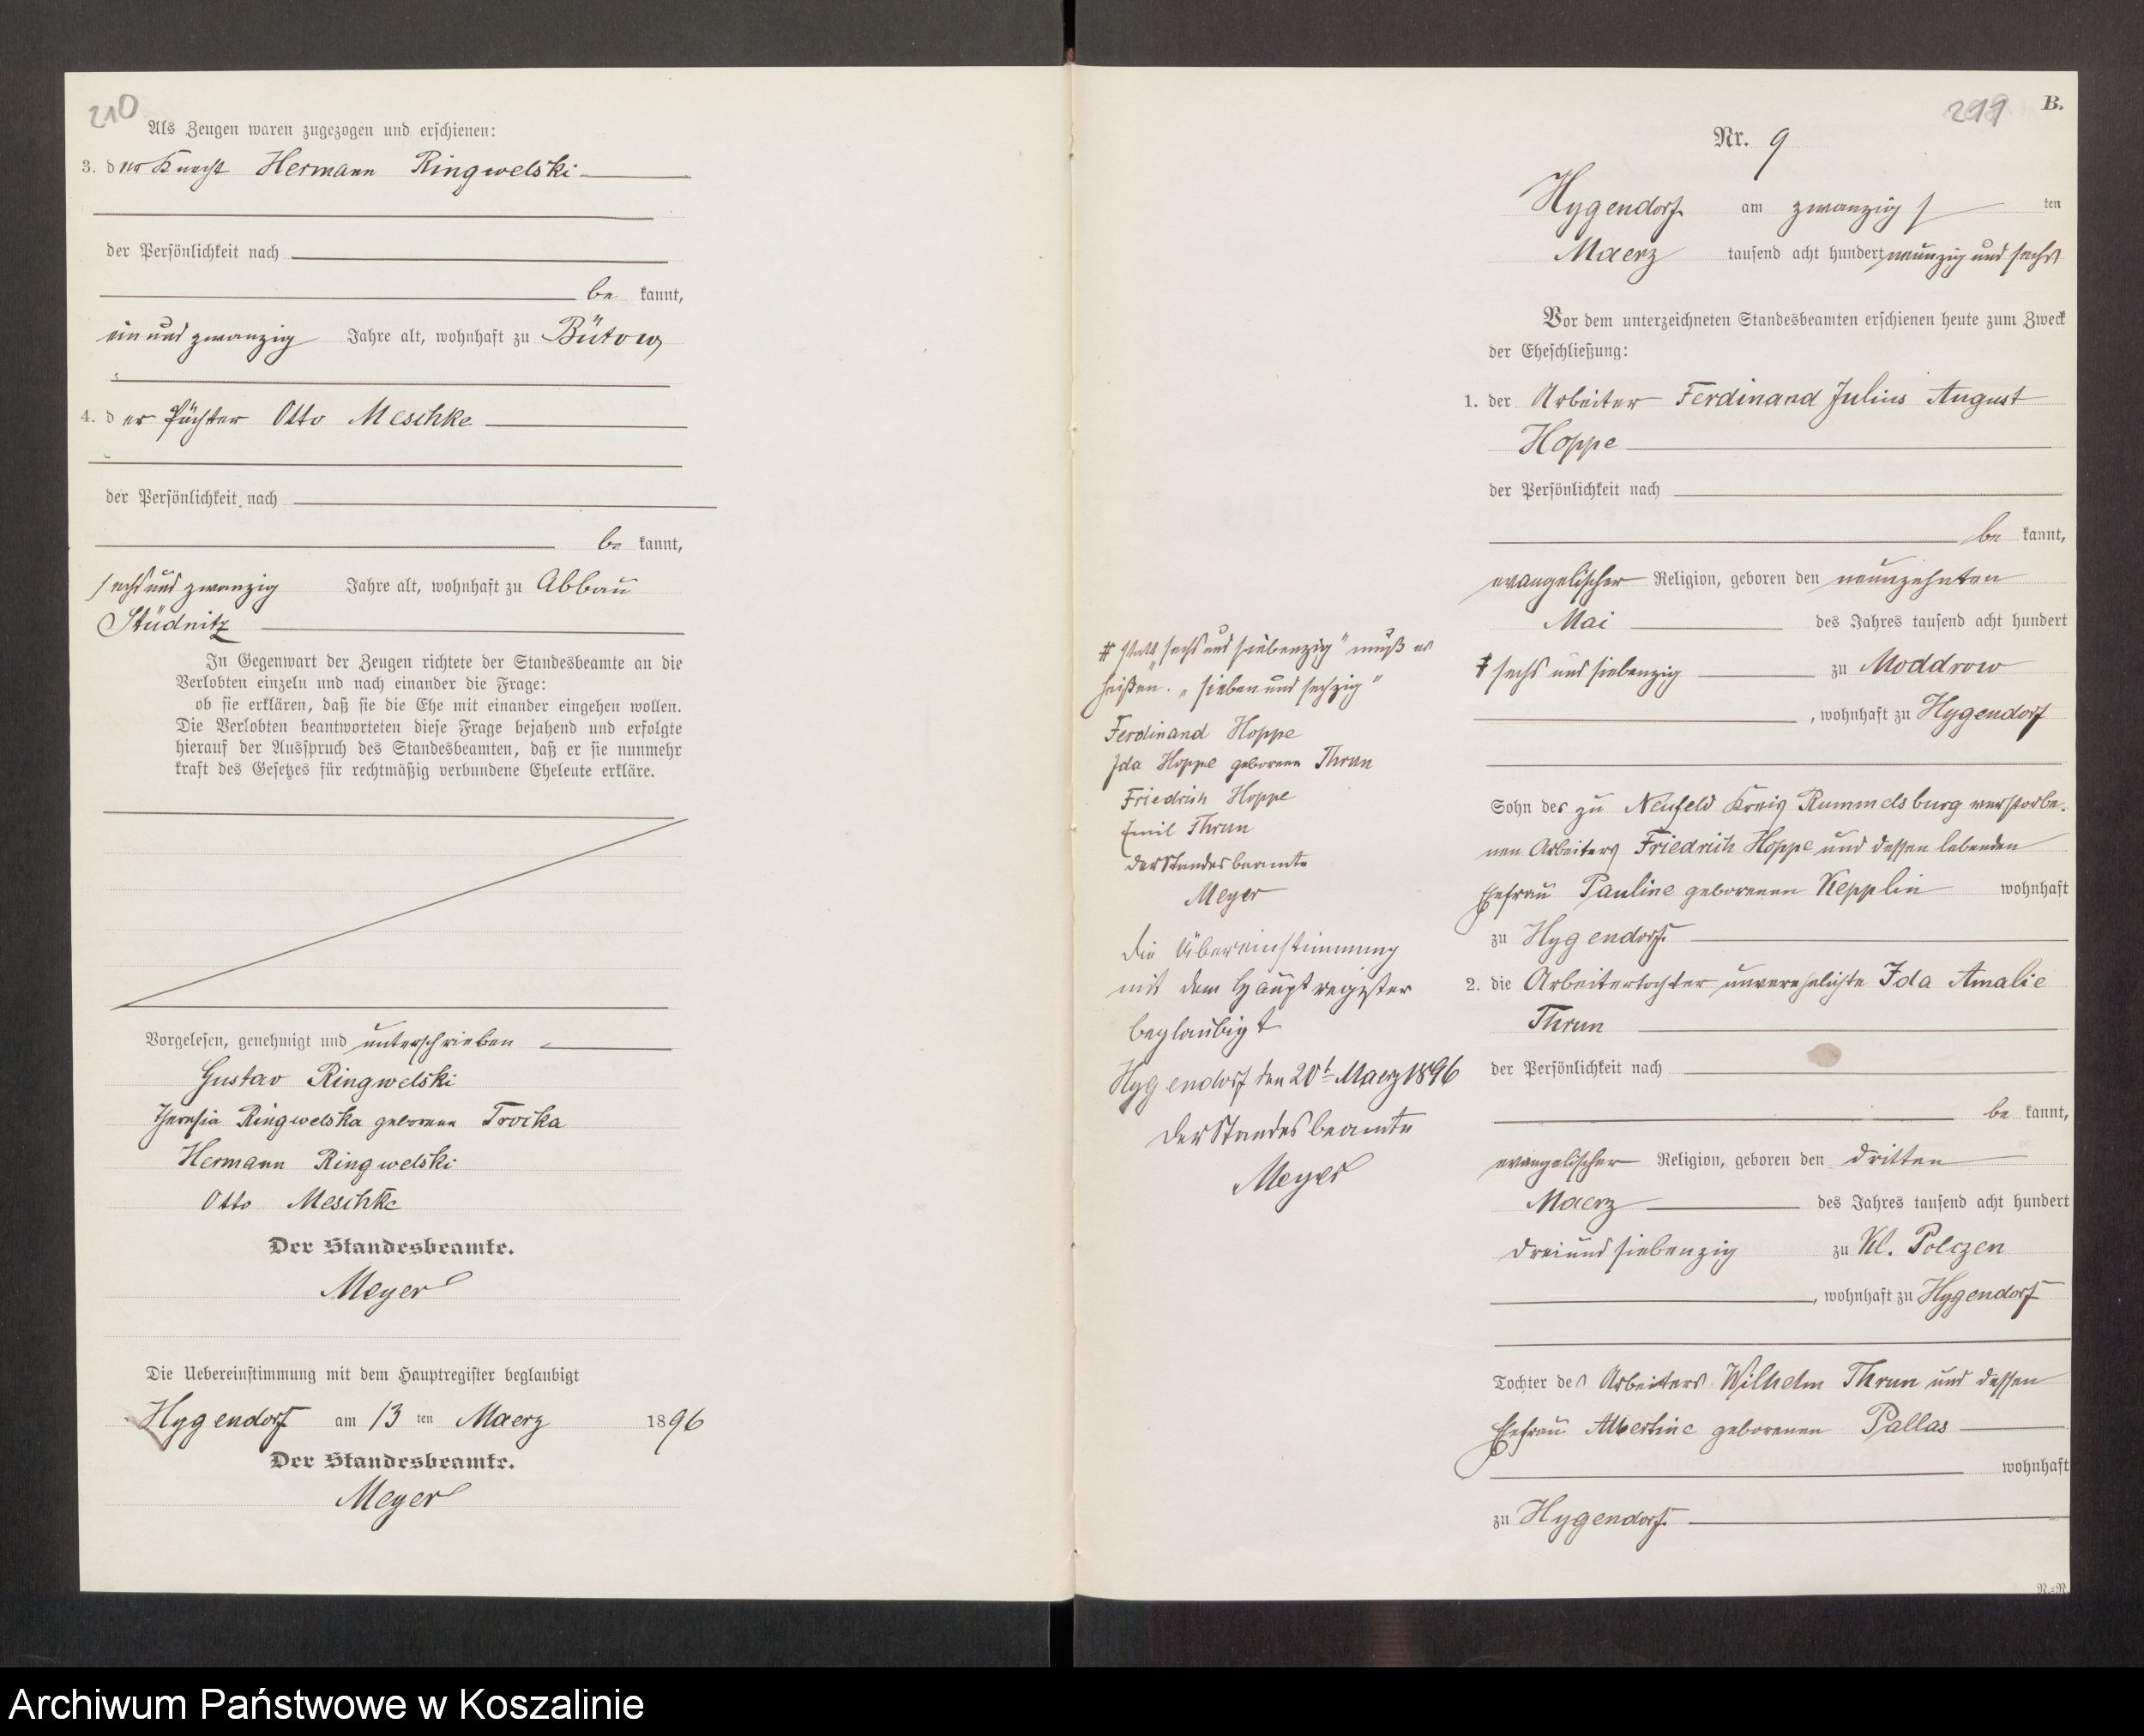 210
Als Zeugen waren zugezogen und erschienen:
3. der Knecht Hermann Ringwelski
der Persönlichkeit nach
be kannt,
ein und zwanzig Jahre alt, wohnhaft zu Bütow
4. der Pächter Otto Meschke
der Persönlichkeit nach
be kannt,
sechs und zwanzig Jahre alt, wohnhaft zu Abbau
Stüdnitz
In Gegenwart der Zeugen richtete der Standesbeamte an die
Verlobten einzeln und nach einander die Frage:
ob sie erklären, daß sie die Ehe mit einander eingehen wollen.
Die Verlobten beantworteten diese Frage bejahend und erfolgte
hierauf der Ausspruch des Standesbeamten, daß er sie nunmehr
kraft des Gesetzes für rechtmäßig verbundene Eheleute erkläre.
Vorgelesen, genehmigt und unterschrieben
Gustav Ringwelski
Theresia Ringwelska geborene Trocka
Hermann Ringwelski
Otto Meschke
Der Standesbeamte.
Meyer
Die Uebereinstimmung mit dem Hauptregister beglaubigt
Hygendorf am 13 ten Maerz 1896
Der Standesbeamte.
Meyer
# statt „sechs und siebenzig" muß es
heißen „sieben und sechzig"
Ferdinand Hoppe
Ida Hoppe geborene Thrun
Friedrich Hoppe
Emil Thrun
der Standesbeamte
Meyer
die Übereinstimmung
mit dem Hauptregister
beglaubigt
Hygendorf den 20t Maerz 1896
der Standesbeamte
Meyer
211
B.
Nr. 9
Hygendorf am zwanzigs ten
Maerz tausend acht hundert neunzig und sechs
Vor dem unterzeichneten Standesbeamten erschienen heute zum Zweck
der Eheschließung:
1. der Arbeiter Ferdinand Julius August
Hoppe
der Persönlichkeit nach
be kannt,
evangelischer Religion, geboren den neunzehnten
Mai des Jahres tausend acht hundert
# sechs und siebenzig zu Moddrow
, wohnhaft zu Hygendorf
Sohn des zu Neufeld Kreis Rummelsburg verstorbe-
nen Arbeiters Friedrich Hoppe und dessen lebenden
Ehefrau Pauline geborenen Kepplin wohnhaft
zu Hygendorf.
2. die Arbeitertochter unverehelichte Ida Amalie
Thrun
der Persönlichkeit nach
be kannt,
evangelischer Religion, geboren den dritten
Maerz des Jahres tausend acht hundert
drei und siebenzig zu Kl. Polczen
, wohnhaft zu Hygendorf
Tochter des Arbeiters Wilhelm Thrun und dessen
Ehefrau Albertine geborenen Pallas
wohnhaft
zu Hygendorf.
Archiwum Państwowe w Koszalinie